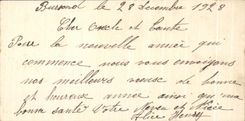 Bussand le 28 décembre 1928
Cher Oncle et tante
Pour la nouvelle année qui
commence nous vous envoyons
nos meilleurs vœux de bonne
et heureux année ainsi que une
bonne santé Votre Neveu et Nièce
Alice Henry